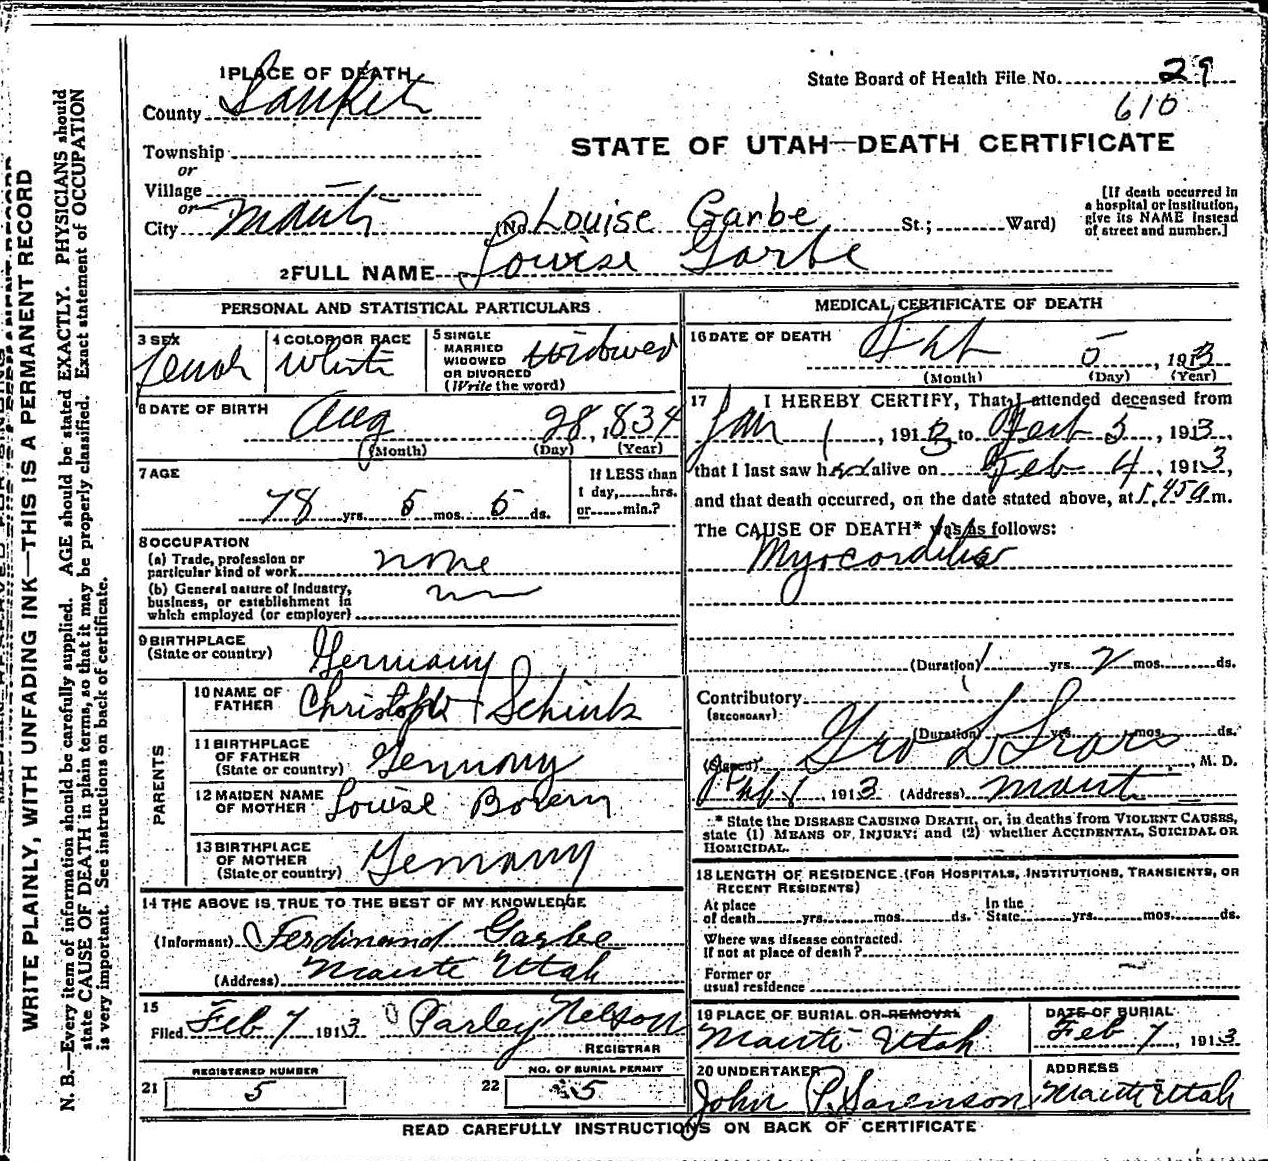 1 PLACE OF DEATH
State Board of Health File No. 29
County Sanpete
610
Township
or
STATE OF UTAH—DEATH CERTIFICATE
Village
or
City Manti (No. Louise Garbe St.; Ward)
[If death occurred in
a hospital or institution,
give its NAME instead
of street and number.]
2 FULL NAME Louise Garbe
PERSONAL AND STATISTICAL PARTICULARS
3 SEX
Female
4 COLOR OR RACE
White
5 SINGLE
MARRIED
WIDOWED
OR DIVORCED
(Write the word)
Widowed
6 DATE OF BIRTH
Aug 28, 1834
(Month) (Day) (Year)
7 AGE
78 yrs. 5 mos. 5 ds.
If LESS than
1 day, hrs.
or min.?
8 OCCUPATION
(a) Trade, profession or
particular kind of work none
(b) General nature of Industry,
business, or establishment in
which employed (or employer)
9 BIRTHPLACE
(State or country) Germany
PARENTS
10 NAME OF
FATHER Christoph Schink
11 BIRTHPLACE
OF FATHER
(State or country) Germany
12 MAIDEN NAME
OF MOTHER Louise
13 BIRTHPLACE
OF MOTHER
(State or country) Germany
14 THE ABOVE IS TRUE TO THE BEST OF MY KNOWLEDGE
(Informant) Ferdinand Garbe
(Address) Manti Utah
15
Filed Feb 7 1913 Parley Nelson
REGISTRAR
REGISTERED NUMBER
21 5
NO. OF BURIAL PERMIT
22 5
MEDICAL CERTIFICATE OF DEATH
16 DATE OF DEATH
Feb 5, 1913
(Month) (Day) (Year)
17 I HEREBY CERTIFY, That I attended deceased from
Jan 1, 1913 to Feb 5, 1913,
that I last saw her alive on Feb 4, 1913,
and that death occurred, on the date stated above, at 1.45 a m.
The CAUSE OF DEATH* was as follows:
Myocarditis
(Duration) 1 yrs. 2 mos. ds.
Contributory
(SECONDARY)
(Duration) yrs. mos. ds.
(Signed) Geo L Sears, M. D.
Feb, 1913 (Address) Manti
* State the DISEASE CAUSING DEATH, or, in deaths from VIOLENT CAUSES,
state (1) MEANS OF INJURY; and (2) whether ACCIDENTAL, SUICIDAL OR
HOMICIDAL.
18 LENGTH OF RESIDENCE (FOR HOSPITALS, INSTITUTIONS, TRANSIENTS, OR
RECENT RESIDENTS)
At place
of death yrs. mos. ds.
In the
State yrs. mos. ds.
Where was disease contracted.
If not at place of death?
Former or
usual residence
19 PLACE OF BURIAL OR REMOVAL
Manti Utah
DATE OF BURIAL
Feb 7, 1913
20 UNDERTAKER
John P. Sorenson
ADDRESS
Manti Utah
READ CAREFULLY INSTRUCTIONS ON BACK OF CERTIFICATE
WRITE PLAINLY, WITH UNFADING INK—THIS IS A PERMANENT RECORD
N. B.—Every item of information should be carefully supplied. AGE should be stated EXACTLY. PHYSICIANS should
state CAUSE OF DEATH in plain terms, so that it may be properly classified. Exact statement of OCCUPATION
is very important. See instructions on back of certificate.